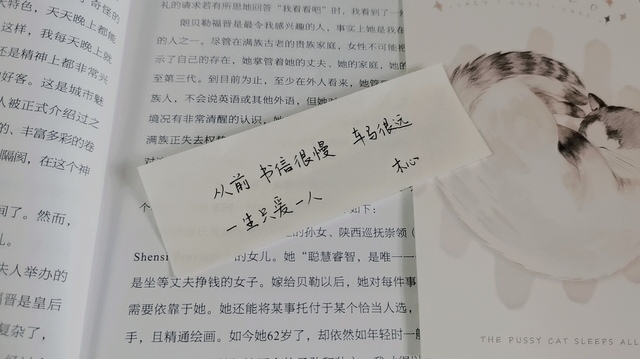 特色,天天晚上都能
这样,我每天晚上晚
还是精神上都非常兴
好客。这是城市魅
人被正式介绍过之
的、丰富多彩的卷
隔阂,在这个神
间了。然而,
儿。
夫人举办的
福晋是皇后
复杂了,
礼的请求若有所思地回答“我看看吧”时,我看到了一
朗贝勒福晋是最令我感兴趣的人,事实上她是我在
的人之一。尽管在满族古老的贵族家庭,女性不可能抛
示了自己的存在,她掌管着她的丈夫、她的家庭,她的
至第三代。到目前为止,至少在外人看来,她管
族人,不会说英语或其他外语,但她对
境况有非常清醒的认识,她
满族正失去权势
从前 书信很慢 车马很远
一生只爱一人
木心
如下:
的孙女、陕西巡抚崇领(
Shensi
的女儿。她“聪慧睿智,是唯一一
是坐等丈夫挣钱的女子。嫁给贝勒以后,她对每件事
需要依靠于她。她还能将某事托付于某个恰当人选,
手,且精通绘画。如今她62岁了,却依然如年轻时一般
THE PUSSY CAT SLEEPS ALL